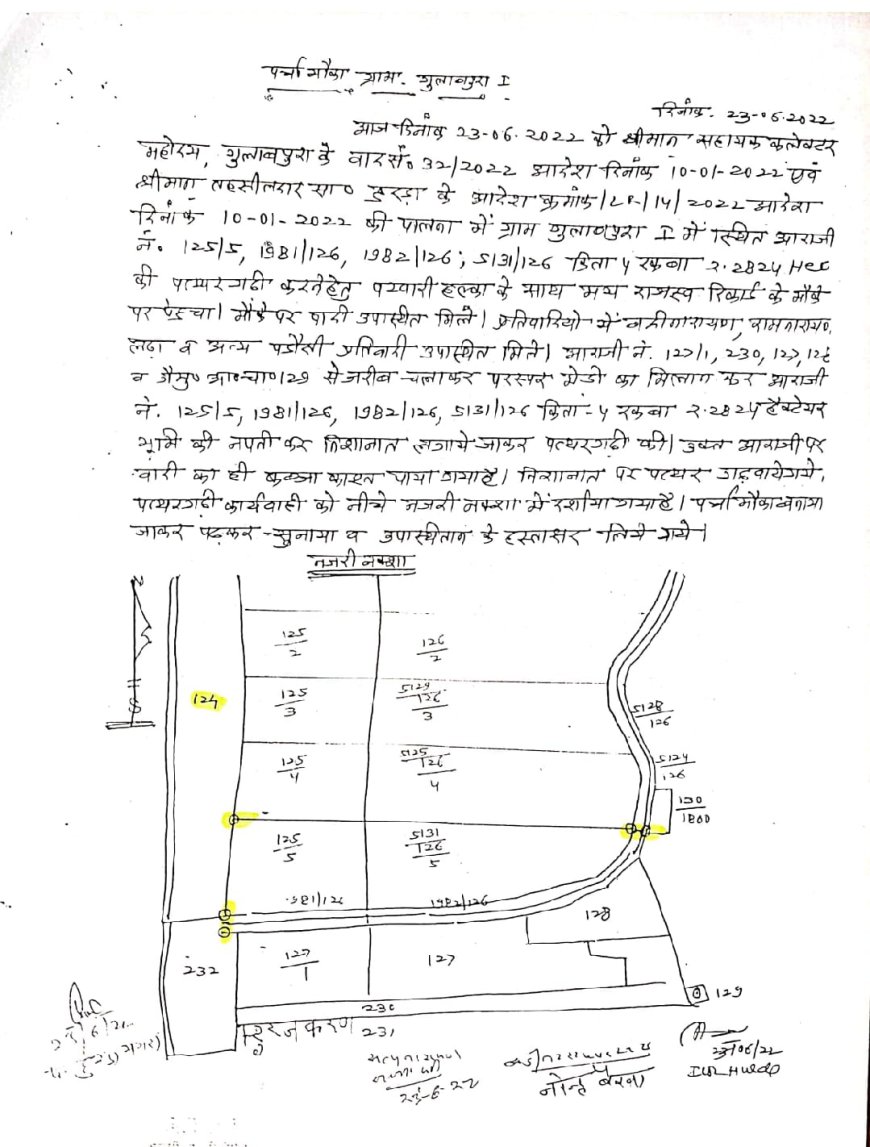 पर्चा मौका ग्राम. गुलाबपुरा I
दिनांक. 23-06-2022
आज दिनांक 23-06-2022 को श्रीमान सहायक कलेक्टर
महोदय, गुलाबपुरा के वाद सं० 32/2022 आदेश दिनांक 10-01-2022 एवं
श्रीमान तहसीलदार सा० हुरड़ा के आदेश क्रमांक/LR/14/2022 आदेश
दिनांक 10-01-2022 की पालना में ग्राम गुलाबपुरा I में स्थित आराजी
नं. 125/5, 1981/126, 1982/126, 5131/126 किता 4 रकबा 2.2824 Hec
की पत्थरगढी करने हेतु पटवारी हल्का के साथ मय राजस्व रिकार्ड के मौके
पर पहुचा। मौके पर वादी उपास्थित मिले। प्रतिवादियो में बद्रीनारायण, रामनारायण,
लढा व अन्य पडौसी प्रतिवादी उपास्थित मिले। आराजी नं. 127/1, 230, 127, 128
व गैमु० आ०चा० 129 से जरीब चलाकर परस्पर मेडो का मिलान कर आराजी
नं. 125/5, 1981/126, 1982/126, 5131/126 किता 4 रकबा 2.2824 हैक्टेयर
भूमि की नपती कर निशानात लगाये जाकर पत्थरगढी की। उक्त आराजी पर
वादी का ही कब्जा काश्त पाया गया है। निशानात पर पत्थर गढवाये गये,
पत्थरगढी कार्यवाही को नीचे नजरी नक्शा में दर्शाया गया है। पर्चा मौका बनाया
जाकर पढ़कर सुनाया व उपास्थितान के हस्ताक्षर लिये गये।
नजरी नक्शा
N
S
125/2
126/2
124
125/3
5129/126/3
5128/126
125/4
5125/126/4
5124/126
130/1800
125/5
5131/126/5
1981/126
1982/126
128
232
127/1
127
129
230
231
सत्यनारायण
23-6-22
23/06/22